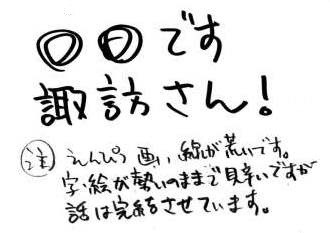 〇〇です
諏訪さん!
注 えんぴつ画い線が荒いです。
字・絵が勢いのままで見辛いですが
話は完結させています。